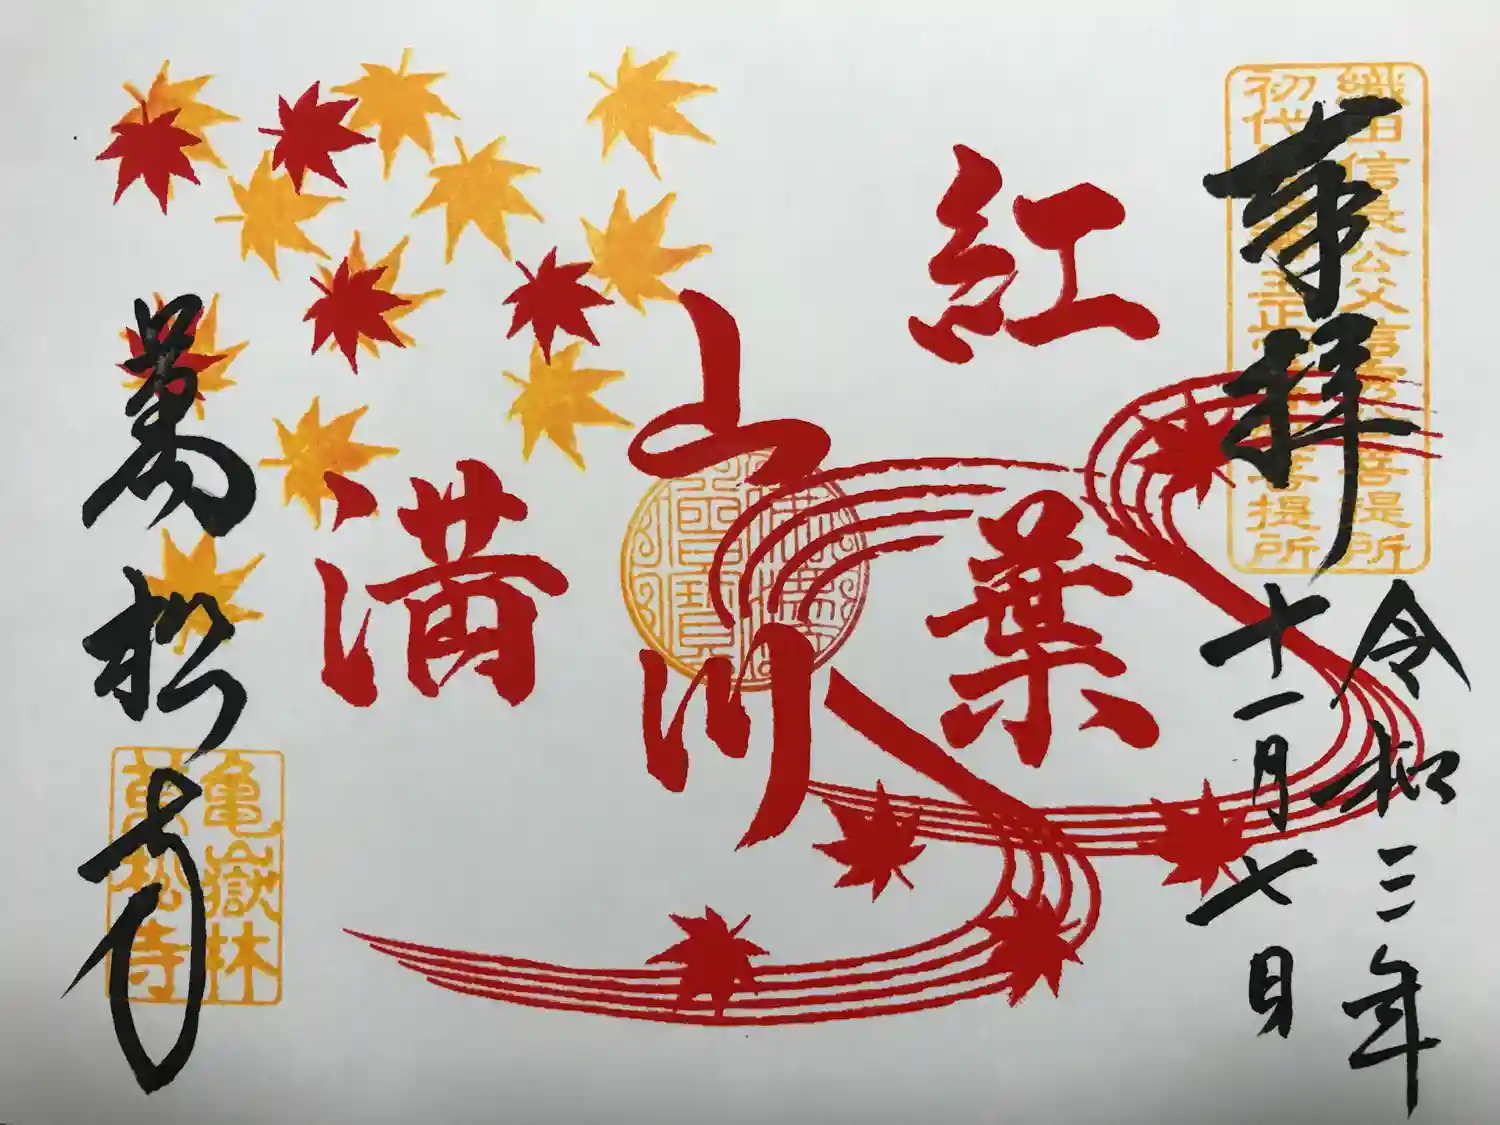 織田信長公父信秀公菩提所
初代 主正 菩提所
奉拝
令和三年
十一月七日
紅葉
山川
満
萬松寺
亀嶽林
萬松寺